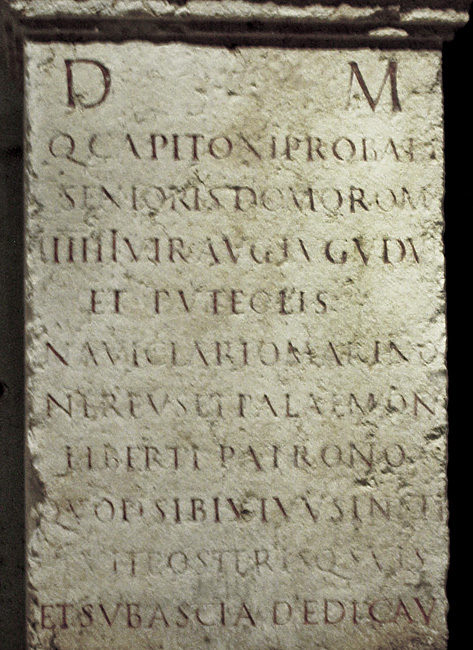 D M
Q CAPITONI PROBAT
SENIORIS DOMO ROM
IIIIIIVIR AVG LVGVDV
ET PVTEOLIS
NAVICLARIO MARINO
NEREVS ET PALAEMON
LIBERTI PATRONO
QVOD SIBI VIVVS INSTI
TVIT POSTERISQ SVIS
ET SVB ASCIA DEDICAV